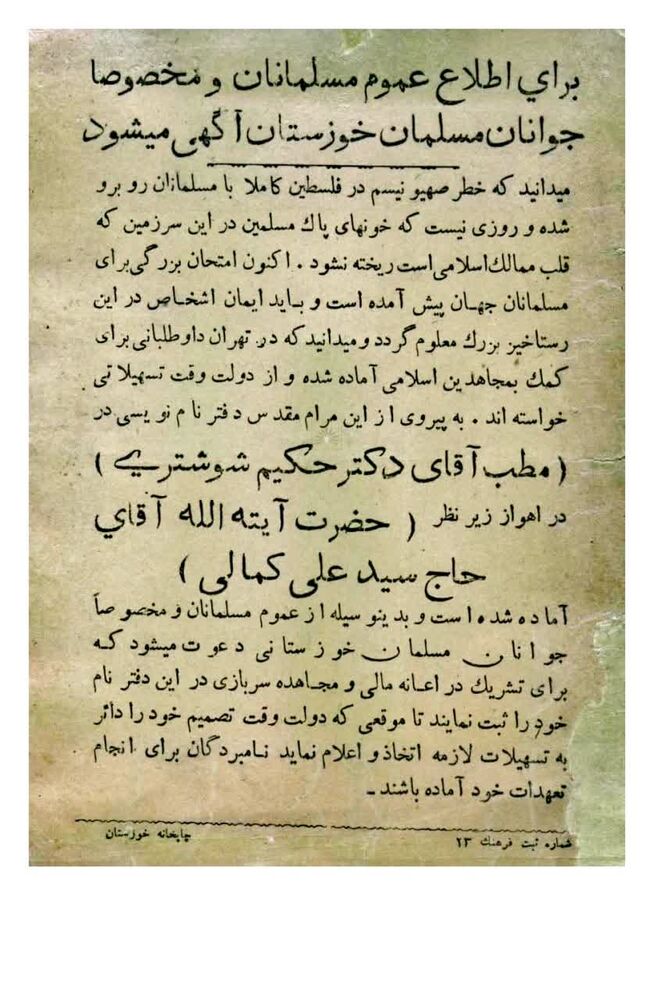 براي اطلاع عموم مسلمانان و مخصوصا
جوانان مسلمان خوزستان آگهی میشود
میدانید که خطر صهیو نیسم در فلسطین کاملا با مسلمانان رو برو
شده و روزی نیست که خونهای پاك مسلمین در این سرزمین که
قلب ممالك اسلامی است ریخته نشود . اکنون امتحان بزرگی برای
مسلمانان جهان پیش آمده است و باید ایمان اشخاص در این
رستاخیز بزرك معلوم گردد و میدانید که در تهران داوطلبانی برای
کمك بمجاهدین اسلامی آماده شده و از دولت وقت تسهیلاتی
خواسته اند . به پیروی از این مرام مقدس دفتر نام نویسی در
( مطب آقای دکتر حکیم شوشتري )
در اهواز زیر نظر ( حضرت آیته الله آقاي
حاج سید علی کمالی )
آماده شده است و بدینو سیله از عموم مسلمانان و مخصوصاً
جوانان مسلمان خوزستانی دعوت میشود که
برای تشریك در اعانه مالی و مجاهده سربازی در این دفتر نام
خود را ثبت نمایند تا موقعی که دولت وقت تصمیم خود را دائر
به تسهیلات لازمه اتخاذ و اعلام نماید نامبردگان برای انجام
تعهدات خود آماده باشند ـ
شماره ثبت فرهنك ۲۳ چاپخانه خوزستان